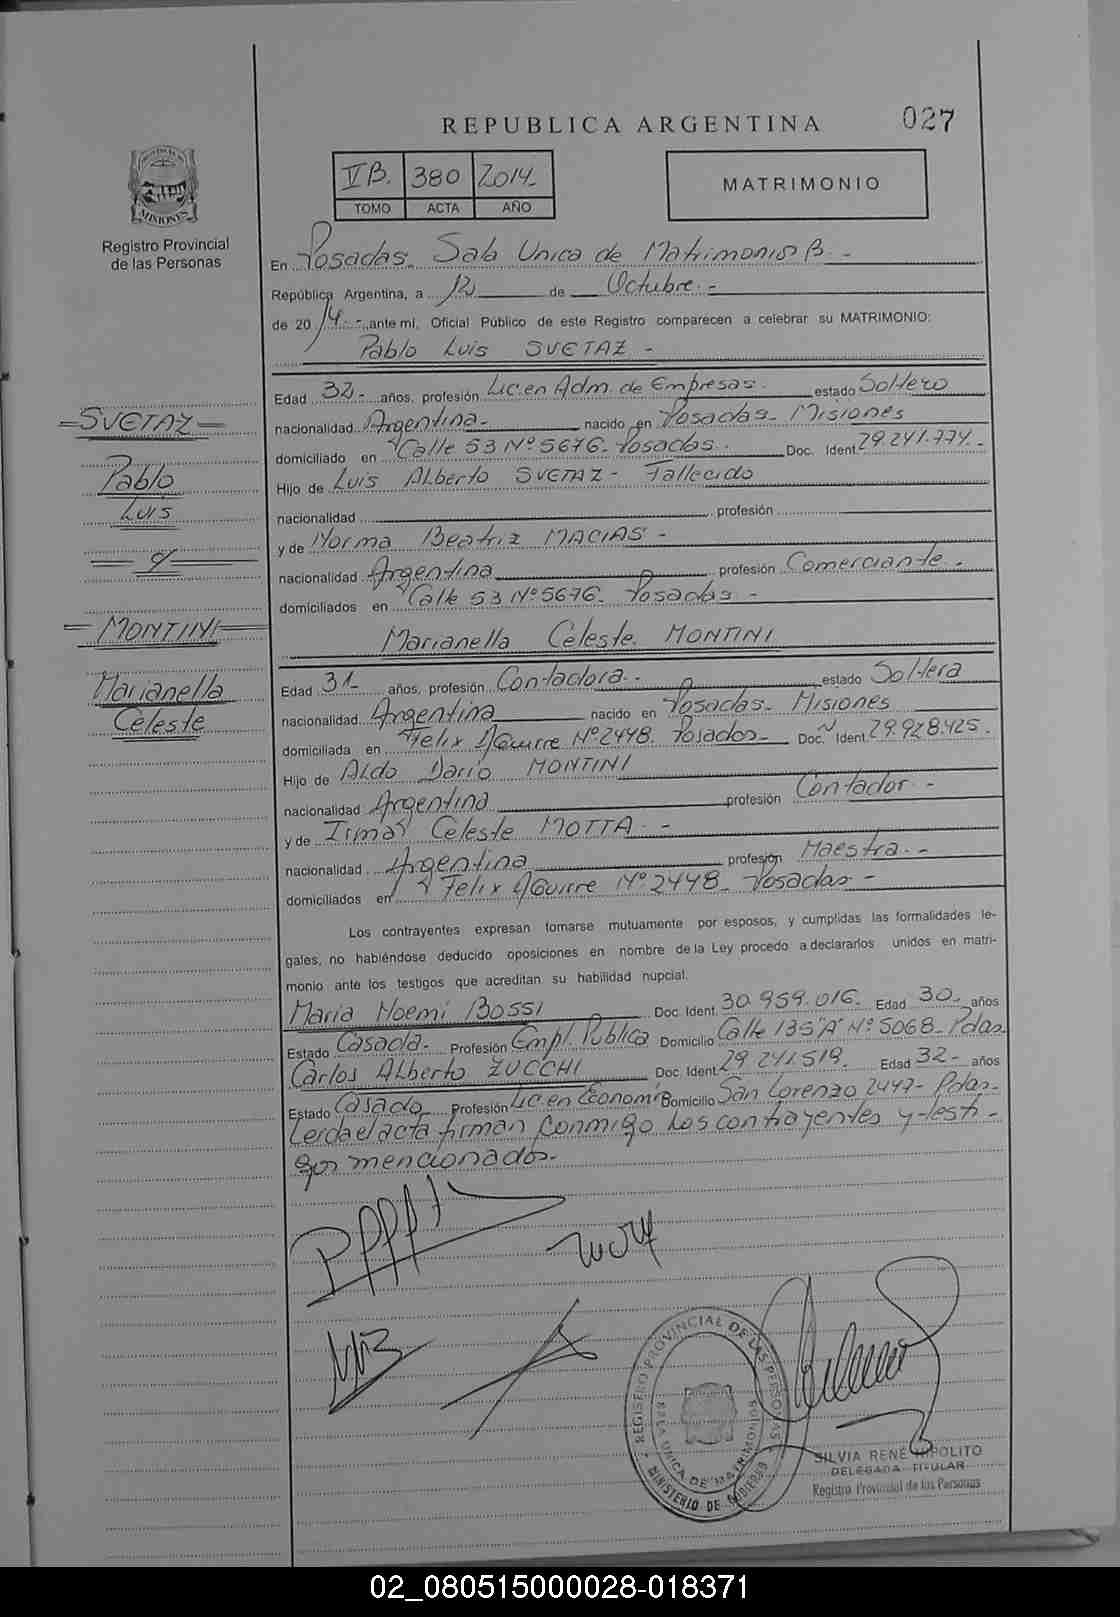 REPUBLICA ARGENTINA
027
VB. 380 2014.-
TOMO ACTA AÑO
MATRIMONIO
PROVINCIA DE MISIONES
Registro Provincial
de las Personas
En Posadas. Sala Unica de Matrimonio B. -
República Argentina, a 12 de Octubre. -
de 20 14. -, ante mí, Oficial Público de este Registro comparecen a celebrar su MATRIMONIO:
Pablo Luis SVETAZ -
Edad 32- años, profesión Lic. en Adm. de Empresas. estado Soltero
nacionalidad Argentina- nacido en Posadas- Misiones
domiciliado en Calle 53 Nº 5676. Posadas. Doc. Ident. 29.241.774.-
Hijo de Luis Alberto SVETAZ - Fallecido
nacionalidad profesión
y de Norma Beatriz MACIAS -
nacionalidad Argentina profesión Comerciante.
domiciliados en Calle 53 Nº 5676. Posadas -
Marianella Celeste MONTINI
Edad 31- años, profesión Contadora.- estado Soltera
nacionalidad Argentina nacido en Posadas- Misiones
domiciliada en Felix Aguirre Nº 2448. Posadas- Doc. Ident. 29.928.425.
Hijo de Aldo Dario MONTINI
nacionalidad Argentina profesión Contador. -
y de Irma Celeste MOTTA. -
nacionalidad Argentina profesión Maestra. -
domiciliados en Felix Aguirre Nº 2448- Posadas -
Los contrayentes expresan tomarse mutuamente por esposos, y cumplidas las formalidades le-
gales, no habiéndose deducido oposiciones en nombre de la Ley procedo a declararlos unidos en matri-
monio ante los testigos que acreditan su habilidad nupcial.
Maria Noemi BOSSI Doc. Ident. 30.959.016. Edad 30- años
Estado Casada- Profesión Empl. Publica Domicilio Calle 135 "A" Nº 5068- Pdas.
Carlos Alberto ZUCCHI Doc. Ident. 29.241.519. Edad 32- años
Estado Casado Profesión Lic. en Economí Domicilio San Lorenzo 2447- Pdas-
Leida el acta firman conmigo los contrayentes y testi-
gos mencionados.-
SVETAZ
Pablo
Luis
y
MONTINI
Marianella
Celeste
REGISTRO PROVINCIAL DE LAS PERSONAS
SALA UNICA DE MATRIMONIOS
MINISTERIO DE GOBIERNO
SILVIA RENÉ HIPOLITO
DELEGADA TITULAR
Registro Provincial de las Personas
02_080515000028-018371